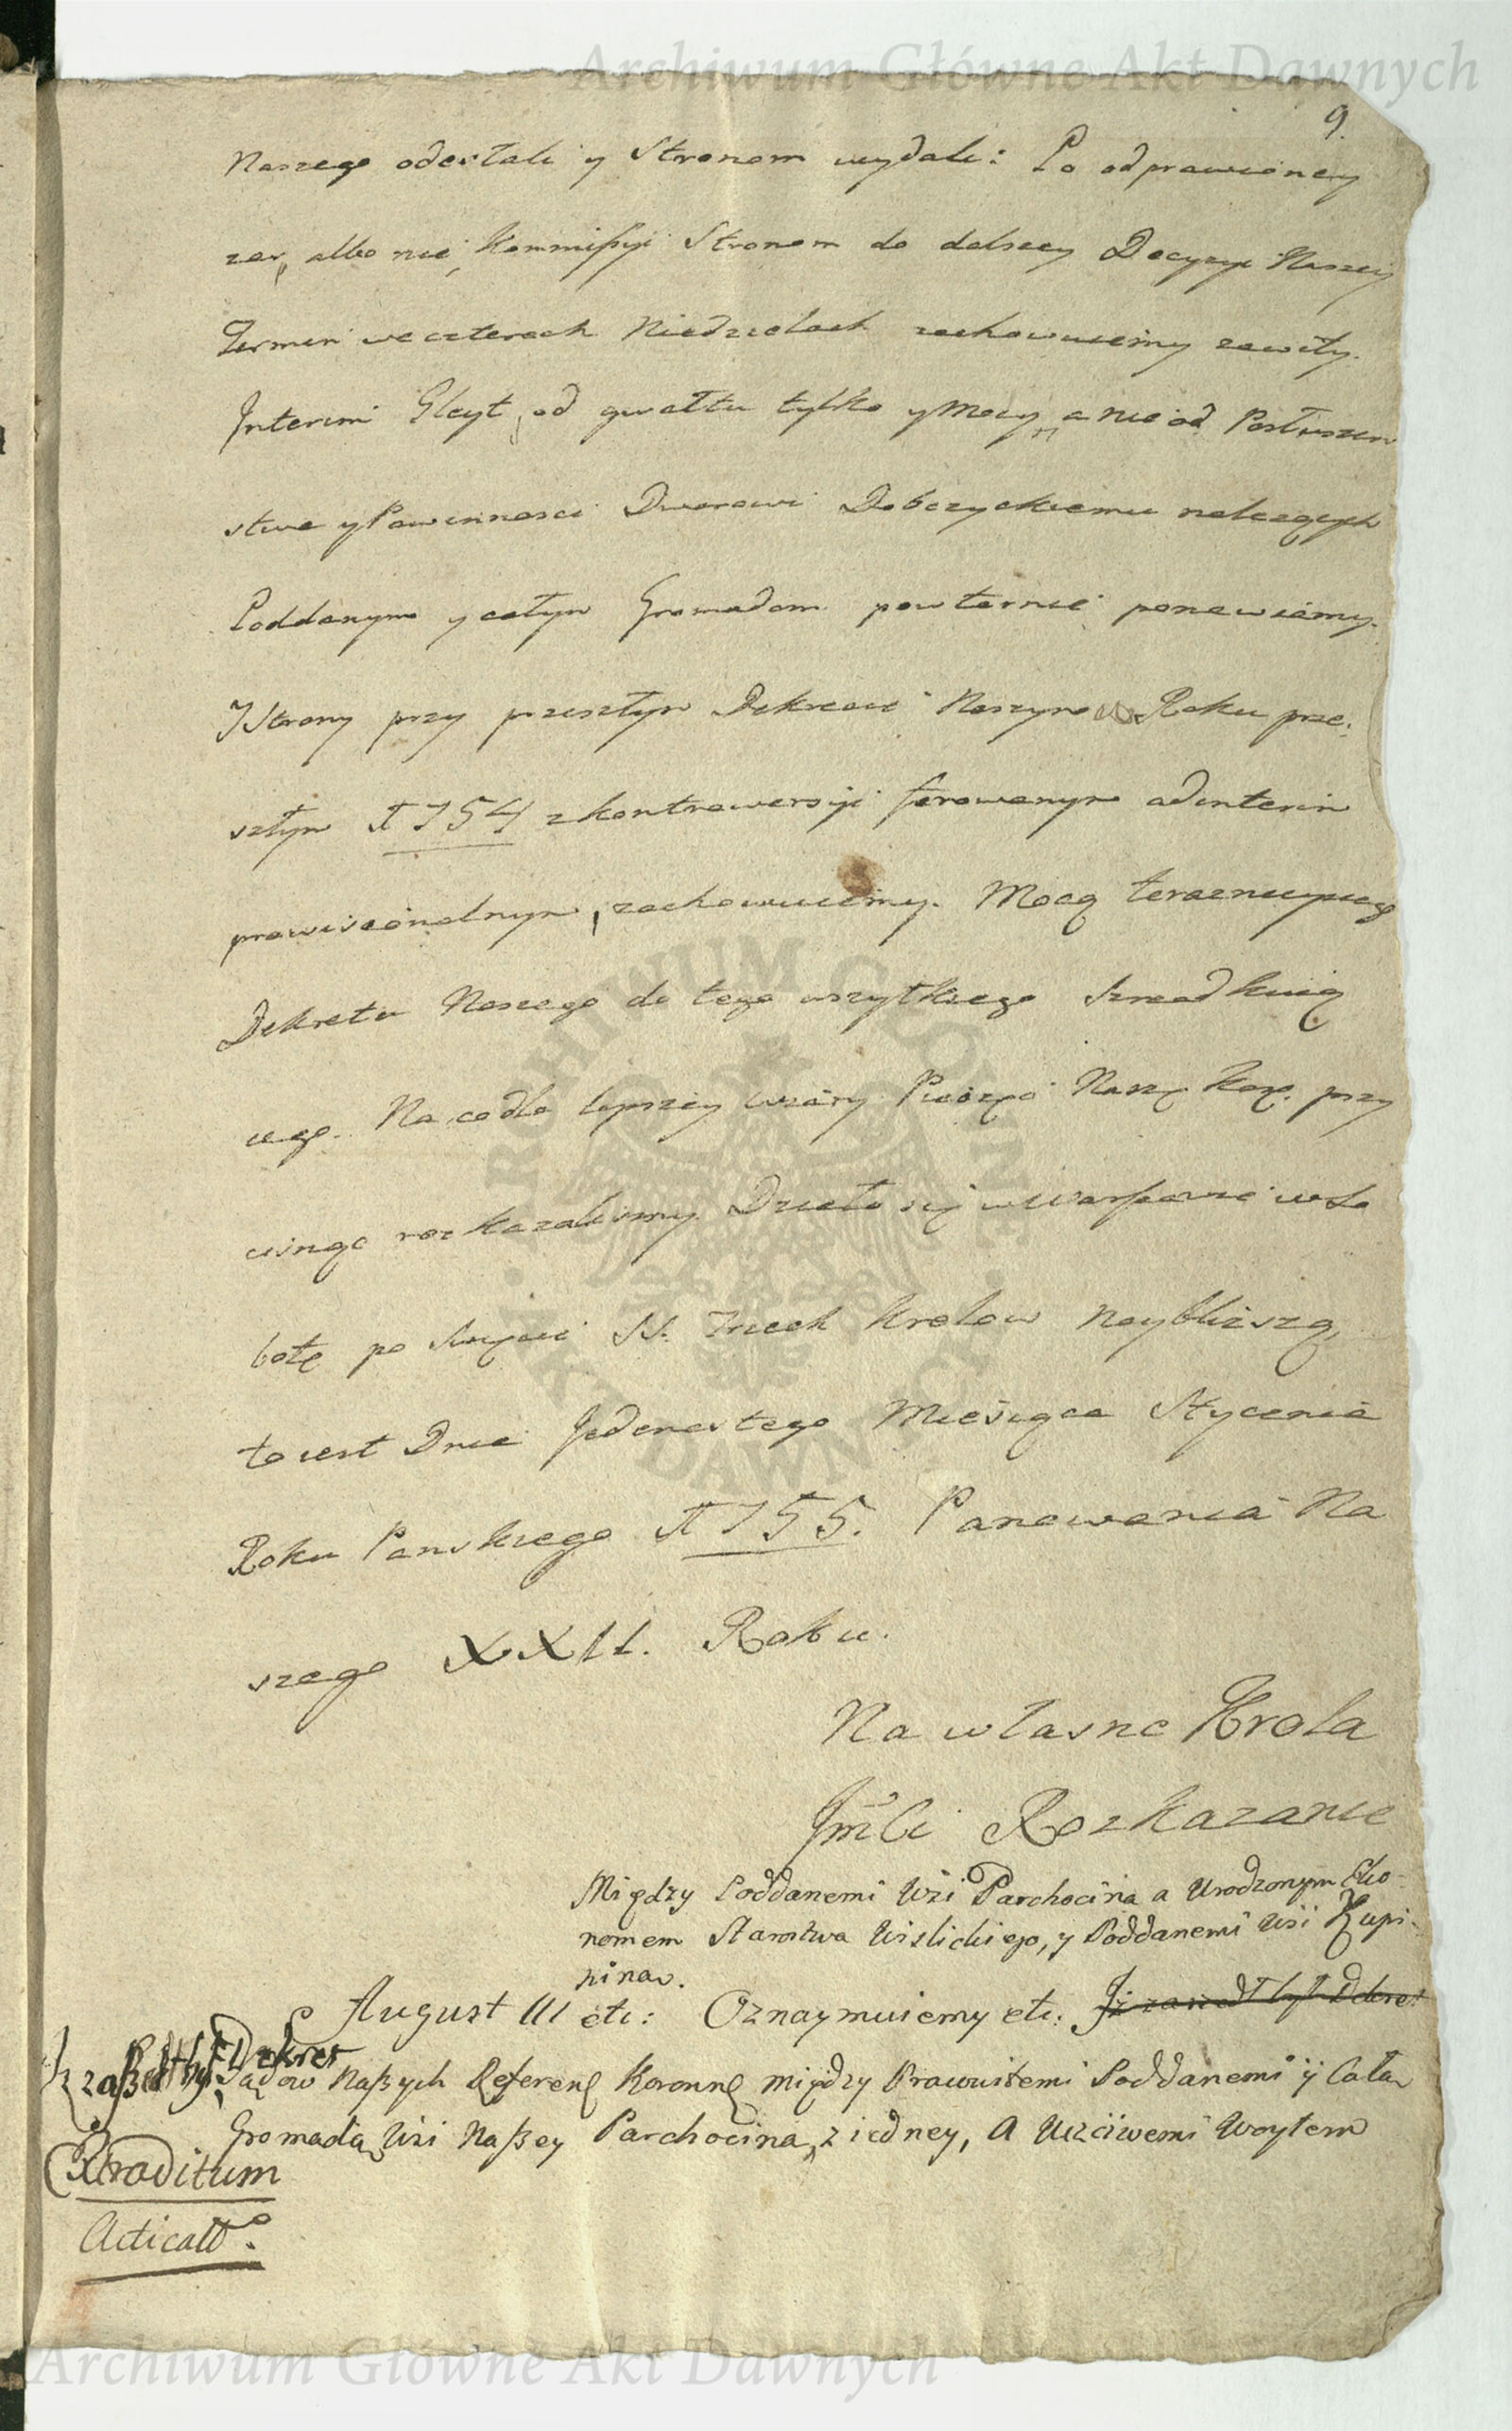 Archiwum Główne Akt Dawnych
9.
Naszego odesłali y Stronom wydali: Po odprawioney
zaś, albo nie, Kommißyi Stronom do dalszey Decyzyi Naszey
Termin we czterech Niedzielach zachowuiemy zawity.
Interim Gleyt, od gwałtu tylko y Mocy, a nie od Posłuszen
stwa y Powinnosci Dworowi Dobczyckiemu należących
Poddanym y całym Gromadom powtornie ponawiamy.
Y Strony przy przeszłym Dekrecie Naszym w Roku prze:
szłym 1754 z kontrowersyi ferowanym ad interim
prowisionalnym, zachowuiemy. Mocą teraznieyszego
Dekretu Naszego do tego wszytkiego
iego. Na co dla lepszey wiary Pieczęć Naszę Kor. przy
cisnąć rozkazalismy. Działo się w Warszawie w So
botę po Święcie SS. Trzech Krolow naybliższą,
to iest Dnia Jedenastego Miesiąca Stycznia
Roku Panskiego 1755. Panowania Na
szego XXII. Roku.
Na własne Krola
Jm̃ci Rozkazanie
Między Poddanemi Wsi Parchocina a Urodzonym Eko-
nomem Starostwa Wislickiego, y Poddanemi Wsi Zupi-
nina.
August III etc: Oznaymuiemy etc. Iż zaszedł był Dekret
Iż zaßedł był Dekret
Sądow Naßych Referen Koronn między Prawuiąemi Poddanemi y Całą
Gromadą Wsi Naßey Parchocina, z iedney, A Uczciwemi Woytem
Extraditum
Acticatt.
ARCHIWUM GŁÓWNE AKT DAWNYCH
Archiwum Główne Akt Dawnych